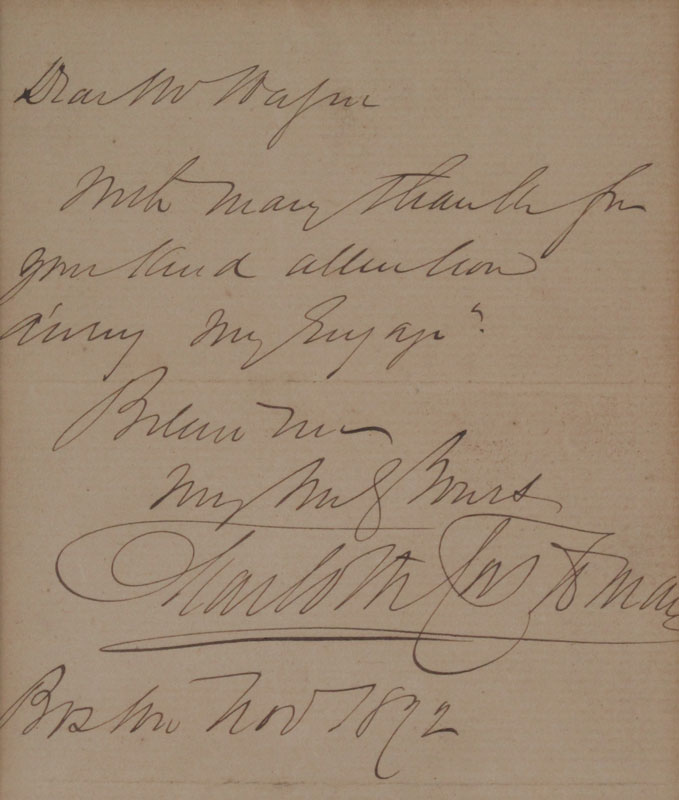 Dear Mr
With many thanks for
your kind attention
during my Engagt.
Believe me
Very truly Yours
Charlotte Cushman
Boston Nov 1872